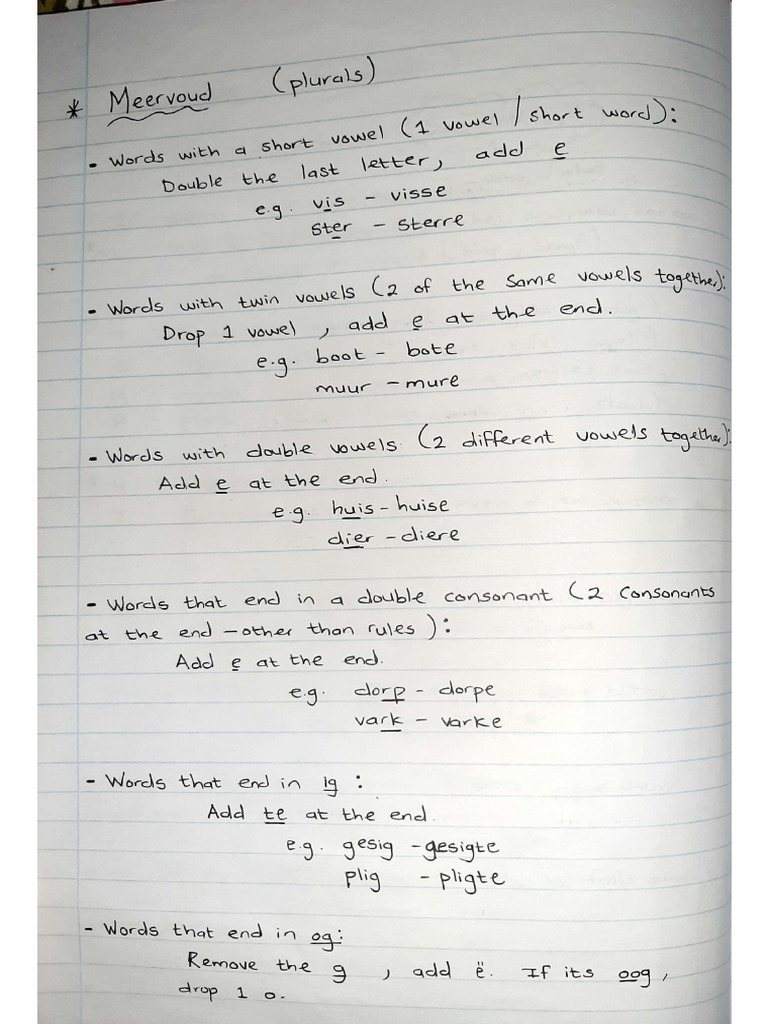 * Meervoud (plurals)
- Words with a short vowel (1 vowel / short word):
Double the last letter, add e
e.g. vis - visse
ster - sterre
- Words with twin vowels (2 of the same vowels together):
Drop 1 vowel, add e at the end.
e.g. boot - bote
muur - mure
- Words with double vowels (2 different vowels together):
Add e at the end.
e.g. huis - huise
dier - diere
- Words that end in a double consonant (2 consonants
at the end - other than rules):
Add e at the end.
e.g. dorp - dorpe
vark - varke
- Words that end in ig:
Add te at the end.
e.g. gesig - gesigte
plig - pligte
- Words that end in og:
Remove the g, add ë. If its oog,
drop 1 o.